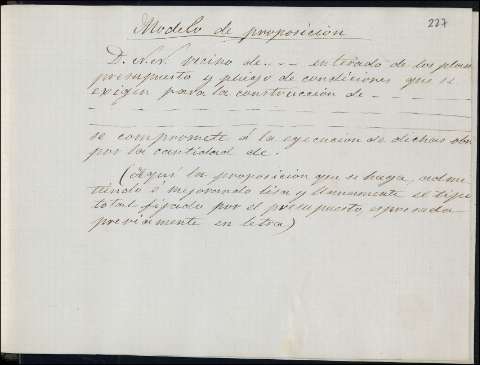 227
Modelo de proposición
D. N. N. vecino de . . . enterado de los planos
presupuesto y pliego de condiciones que se
exigen para la construcción de
se compromete á la ejecución de dichas obras
por la cantidad de.
(Aquí la proposición que se haga, admi
tiendo ó mejorando lisa y llanamente el tipo
total fijado por el presupuesto, espresada
previamente en letra)